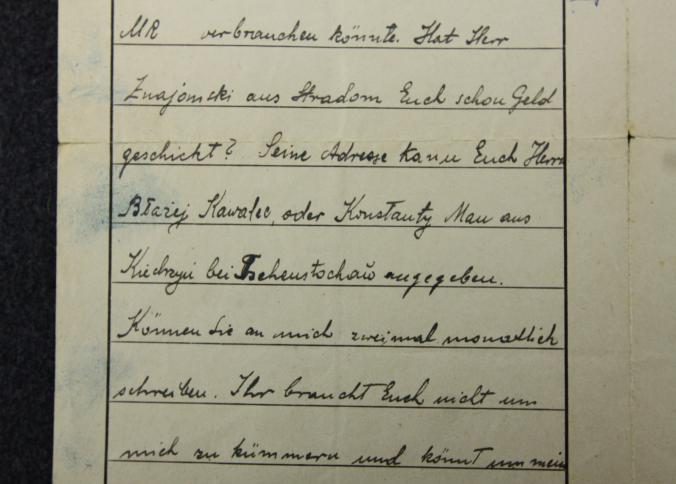 MR verbrauchen könnte. Hat Herr
Znajomski aus Stradom Euch schon Geld
geschickt? Seine Adresse kann Euch Herrn
Błażej Kawalec, oder Konstanty Mau aus
Kiedrzyń bei Tschenstochau angegeben.
Können Sie an mich zweimal monatlich
schreiben. Ihr braucht Euch nicht um
mich zu kümmern und könnt um mein